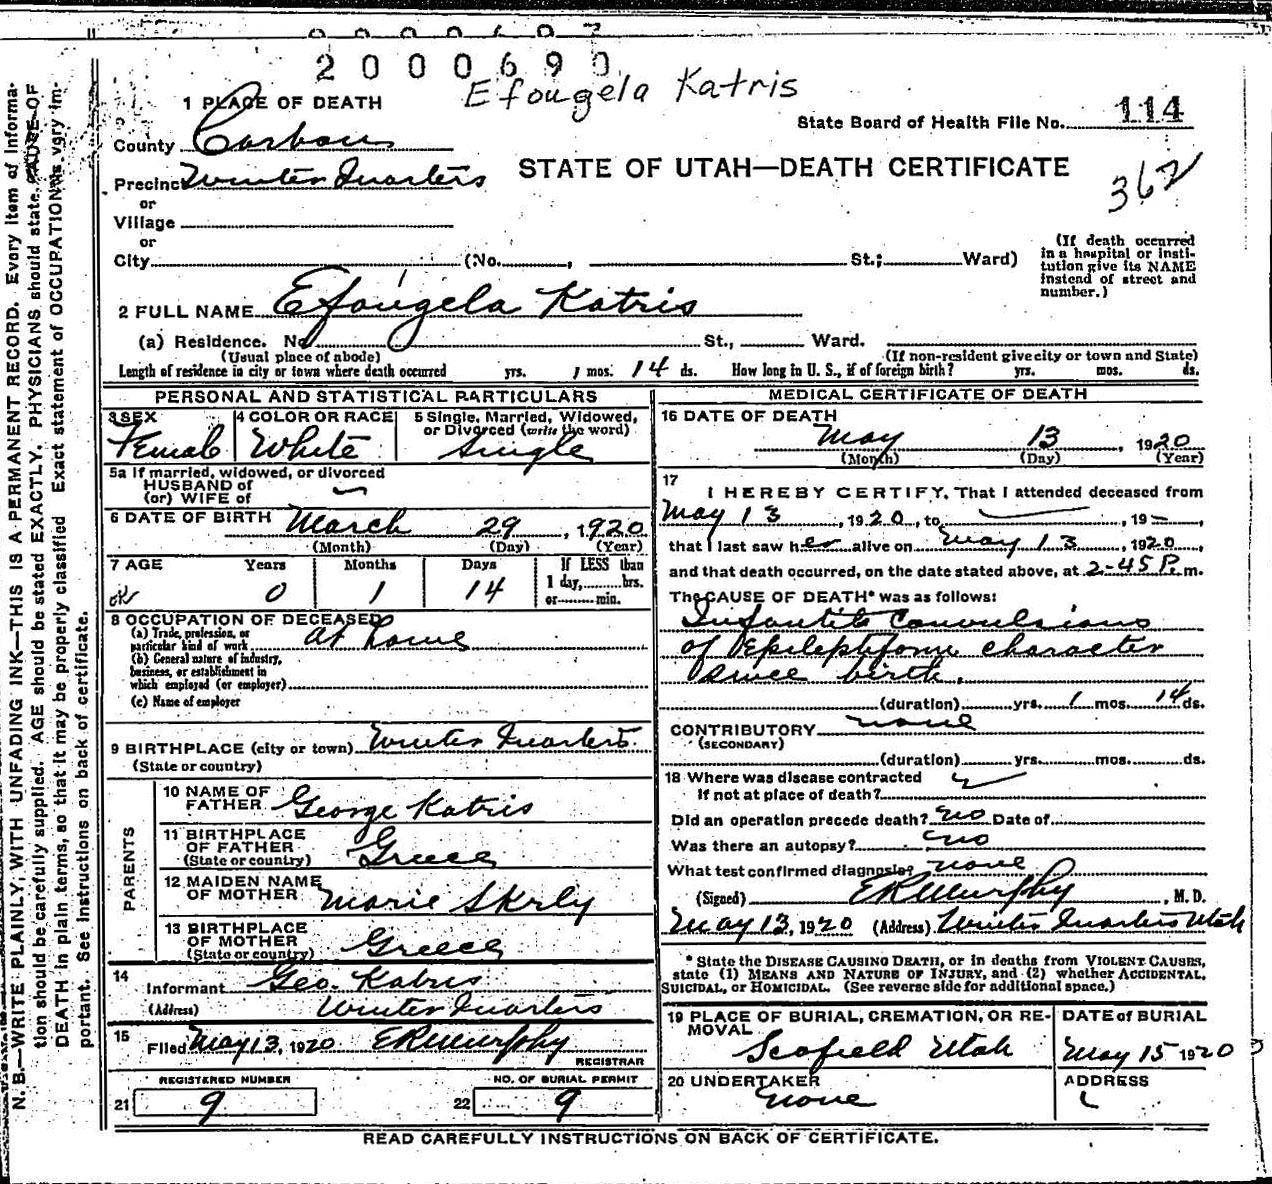 2000690
Efougela Katris
1 PLACE OF DEATH
State Board of Health File No. 114
County Carbon
STATE OF UTAH—DEATH CERTIFICATE
362
Precinct Winter Quarters
or
Village
or
City (No. , St.; Ward)
(If death occurred in a hospital or institution give its NAME instead of street and number.)
2 FULL NAME Efougela Katris
(a) Residence. No. St., Ward.
(Usual place of abode) (If non-resident give city or town and State)
Length of residence in city or town where death occurred yrs. 1 mos. 14 ds. How long in U. S., if of foreign birth? yrs. mos. ds.
PERSONAL AND STATISTICAL PARTICULARS
3 SEX Female
4 COLOR OR RACE White
5 Single, Married, Widowed, or Divorced (write the word) Single
5a If married, widowed, or divorced
HUSBAND of
(or) WIFE of
6 DATE OF BIRTH March 29, 1920
(Month) (Day) (Year)
7 AGE Years Months Days If LESS than
1 day, hrs.
or min.
OK 0 1 14
8 OCCUPATION OF DECEASED
(a) Trade, profession, or
particular kind of work at home
(b) General nature of industry,
business, or establishment in
which employed (or employer)
(c) Name of employer
9 BIRTHPLACE (city or town) Winter Quarters.
(State or country)
PARENTS
10 NAME OF FATHER George Katris
11 BIRTHPLACE OF FATHER (State or country) Greece
12 MAIDEN NAME OF MOTHER Marie Skrly
13 BIRTHPLACE OF MOTHER (State or country) Greece
14
Informant Geo. Katris
(Address) Winter Quarters
15
Filed May 13, 1920 ERMurphy
REGISTRAR
REGISTERED NUMBER NO. OF BURIAL PERMIT
21 9 22 9
MEDICAL CERTIFICATE OF DEATH
16 DATE OF DEATH
May 13 1920
(Month) (Day) (Year)
17
I HEREBY CERTIFY, That I attended deceased from
May 13, 1920, to , 19—,
that I last saw her alive on May 13, 1920,
and that death occurred, on the date stated above, at 2-45 P. m.
The CAUSE OF DEATH* was as follows:
Infantile Convulsions
of Epileptiform character
since birth.
(duration) yrs. 1 mos. 14 ds.
CONTRIBUTORY none
(SECONDARY)
(duration) yrs. mos. ds.
18 Where was disease contracted
If not at place of death?
Did an operation precede death? no Date of
Was there an autopsy? no
What test confirmed diagnosis? none
(Signed) ERMurphy, M. D.
May 13, 1920 (Address) Winter Quarters Utah
* State the DISEASE CAUSING DEATH, or in deaths from VIOLENT CAUSES,
state (1) MEANS AND NATURE OF INJURY, and (2) whether ACCIDENTAL,
SUICIDAL, or HOMICIDAL. (See reverse side for additional space.)
19 PLACE OF BURIAL, CREMATION, OR REMOVAL
Scofield Utah
DATE of BURIAL
May 15 1920
20 UNDERTAKER
none
ADDRESS
READ CAREFULLY INSTRUCTIONS ON BACK OF CERTIFICATE.
N. B.—WRITE PLAINLY, WITH UNFADING INK—THIS IS A PERMANENT RECORD. Every item of informa-
tion should be carefully supplied. AGE should be stated EXACTLY. PHYSICIANS should state CAUSE OF
DEATH in plain terms, so that it may be properly classified Exact statement of OCCUPATION is very im-
portant. See instructions on back of certificate.